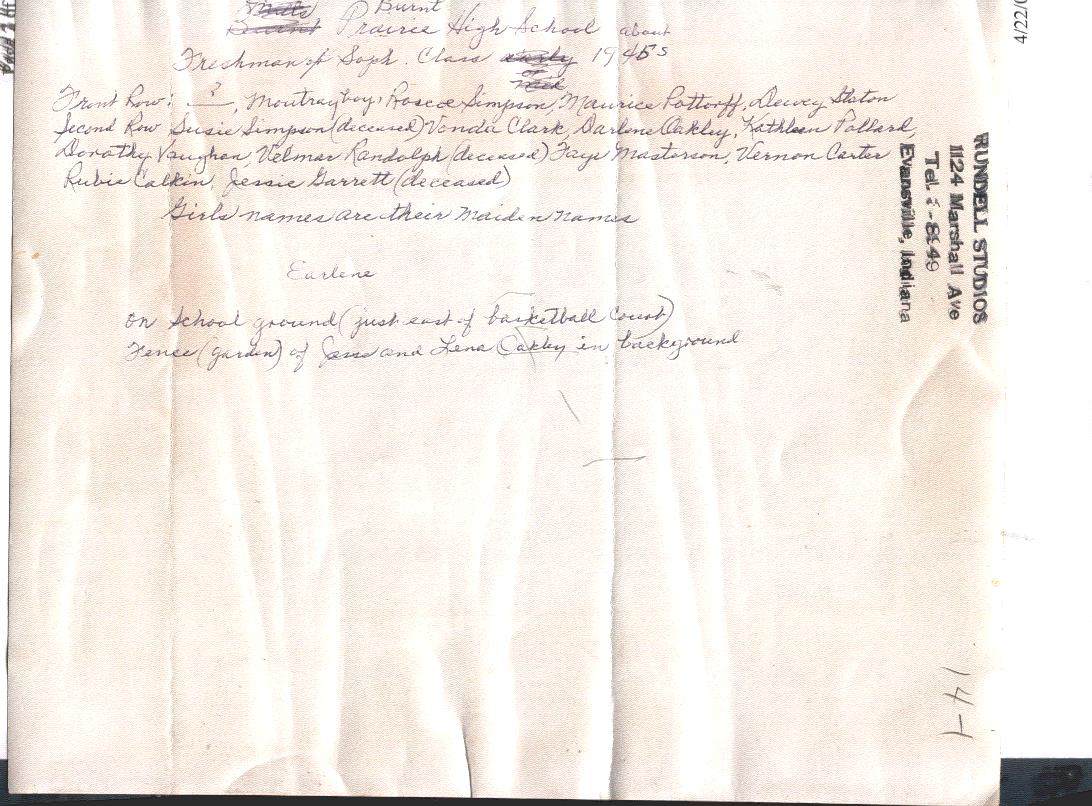 Burnt
Prairie High School about
Freshman of Soph. Class 1945s
Front Row: ?, Moutray boy, Roscoe Simpson, Maurice Pottorff, Dewey Staton
Second Row Susie Simpson (deceased) Vonda Clark, Darlene Oakley, Kathleen Pollard,
Dorothy Vaughan, Velmar Randolph (deceased) Faye Masterson, Vernon Carter
Rubie Calkin, Jessie Garrett (deceased)
Girls' names are their maiden names
Earlene
on school ground (just east of basketball court)
Fence (garden) of Jess and Lena Oakley in background
RUNDELL STUDIOS
1124 Marshall Ave
Tel. -8849
Evansville, Indiana
14-1
4/22/0